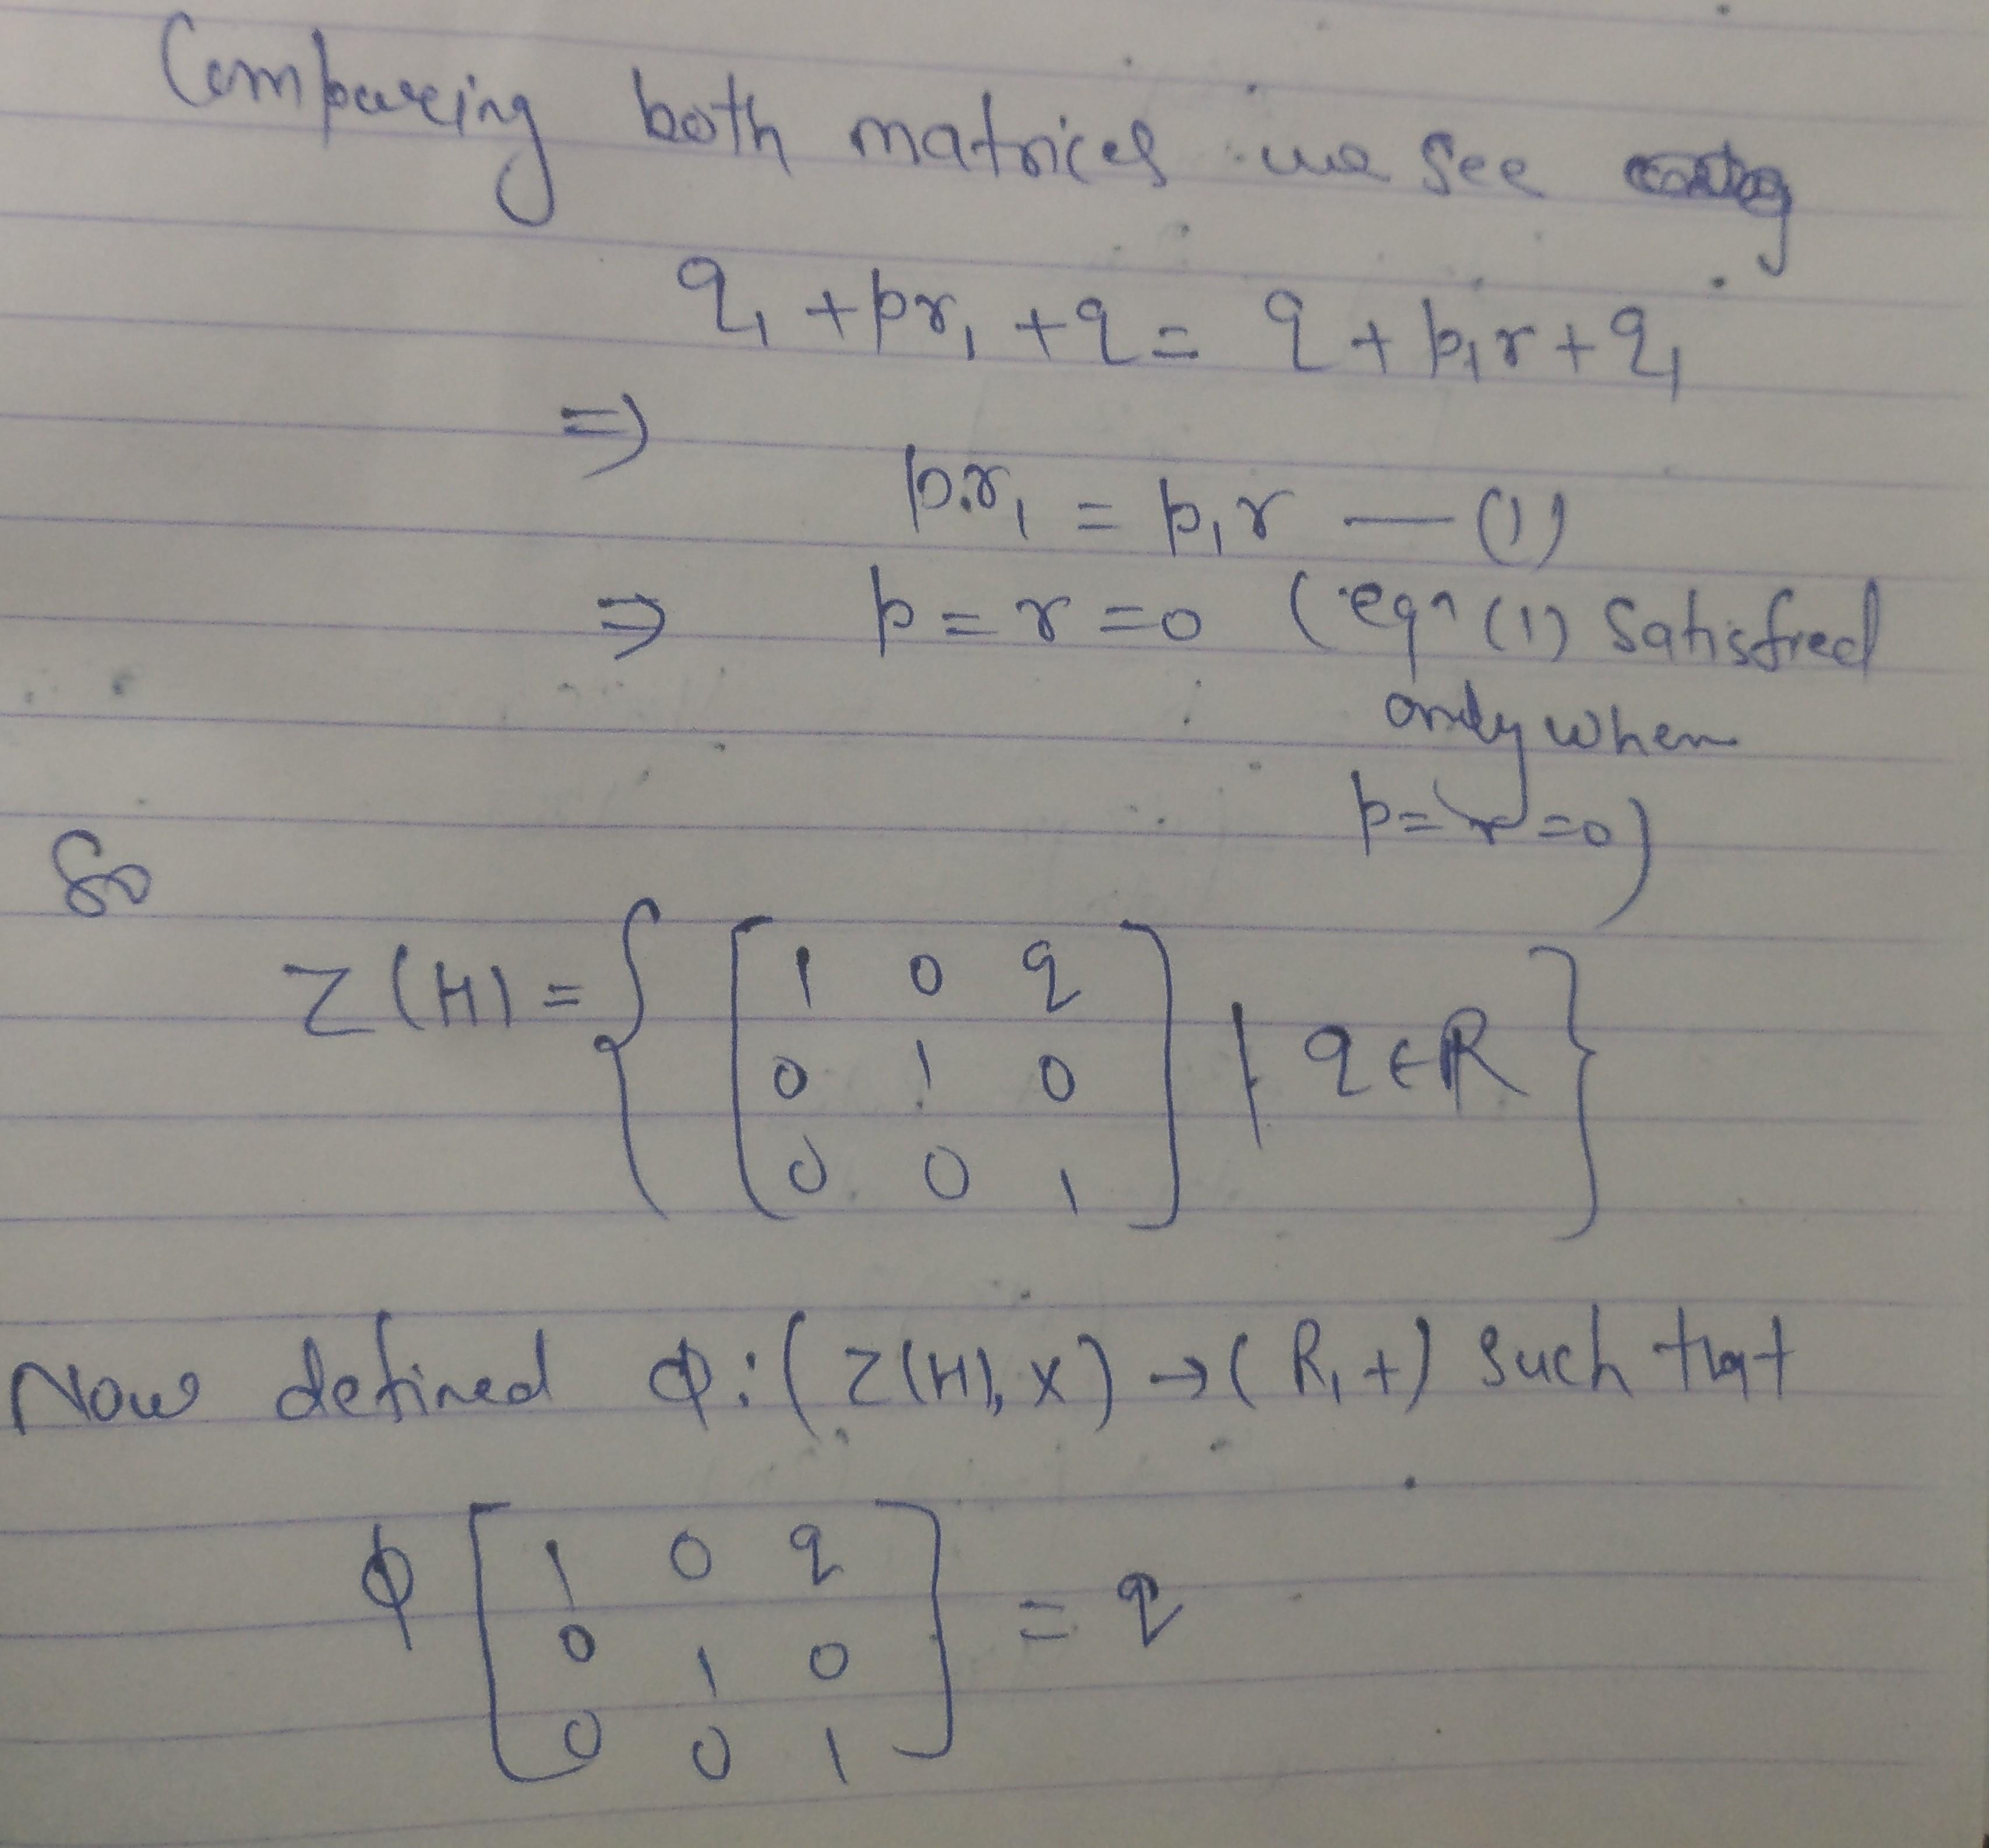 Comparing both matrices we see
q₁ + pr₁ + q = q + p₁r + q₁
⇒
p.r₁ = p₁r — (1)
⇒ p = r = 0 (eqn (1) Satisfied
only when
p = r = 0)
So
Z(H) = { [ 1 0 q
0 1 0 | q ∈ R }
0 0 1 ]
Now defined ϕ : (Z(H), X) → (R, +) such that
ϕ [ 1 0 q
0 1 0 = q
0 0 1 ]